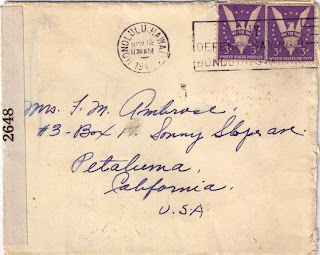 HONOLULU, HAWAII
NOV 12
11 30 AM
UNITED STATES POSTAGE
3¢
UNITED STATES POSTAGE
3¢
2648
Mrs. F. M. Ambrose
#3-Box Sonny Slope ave.
Petaluma,
California.
U.S.A.